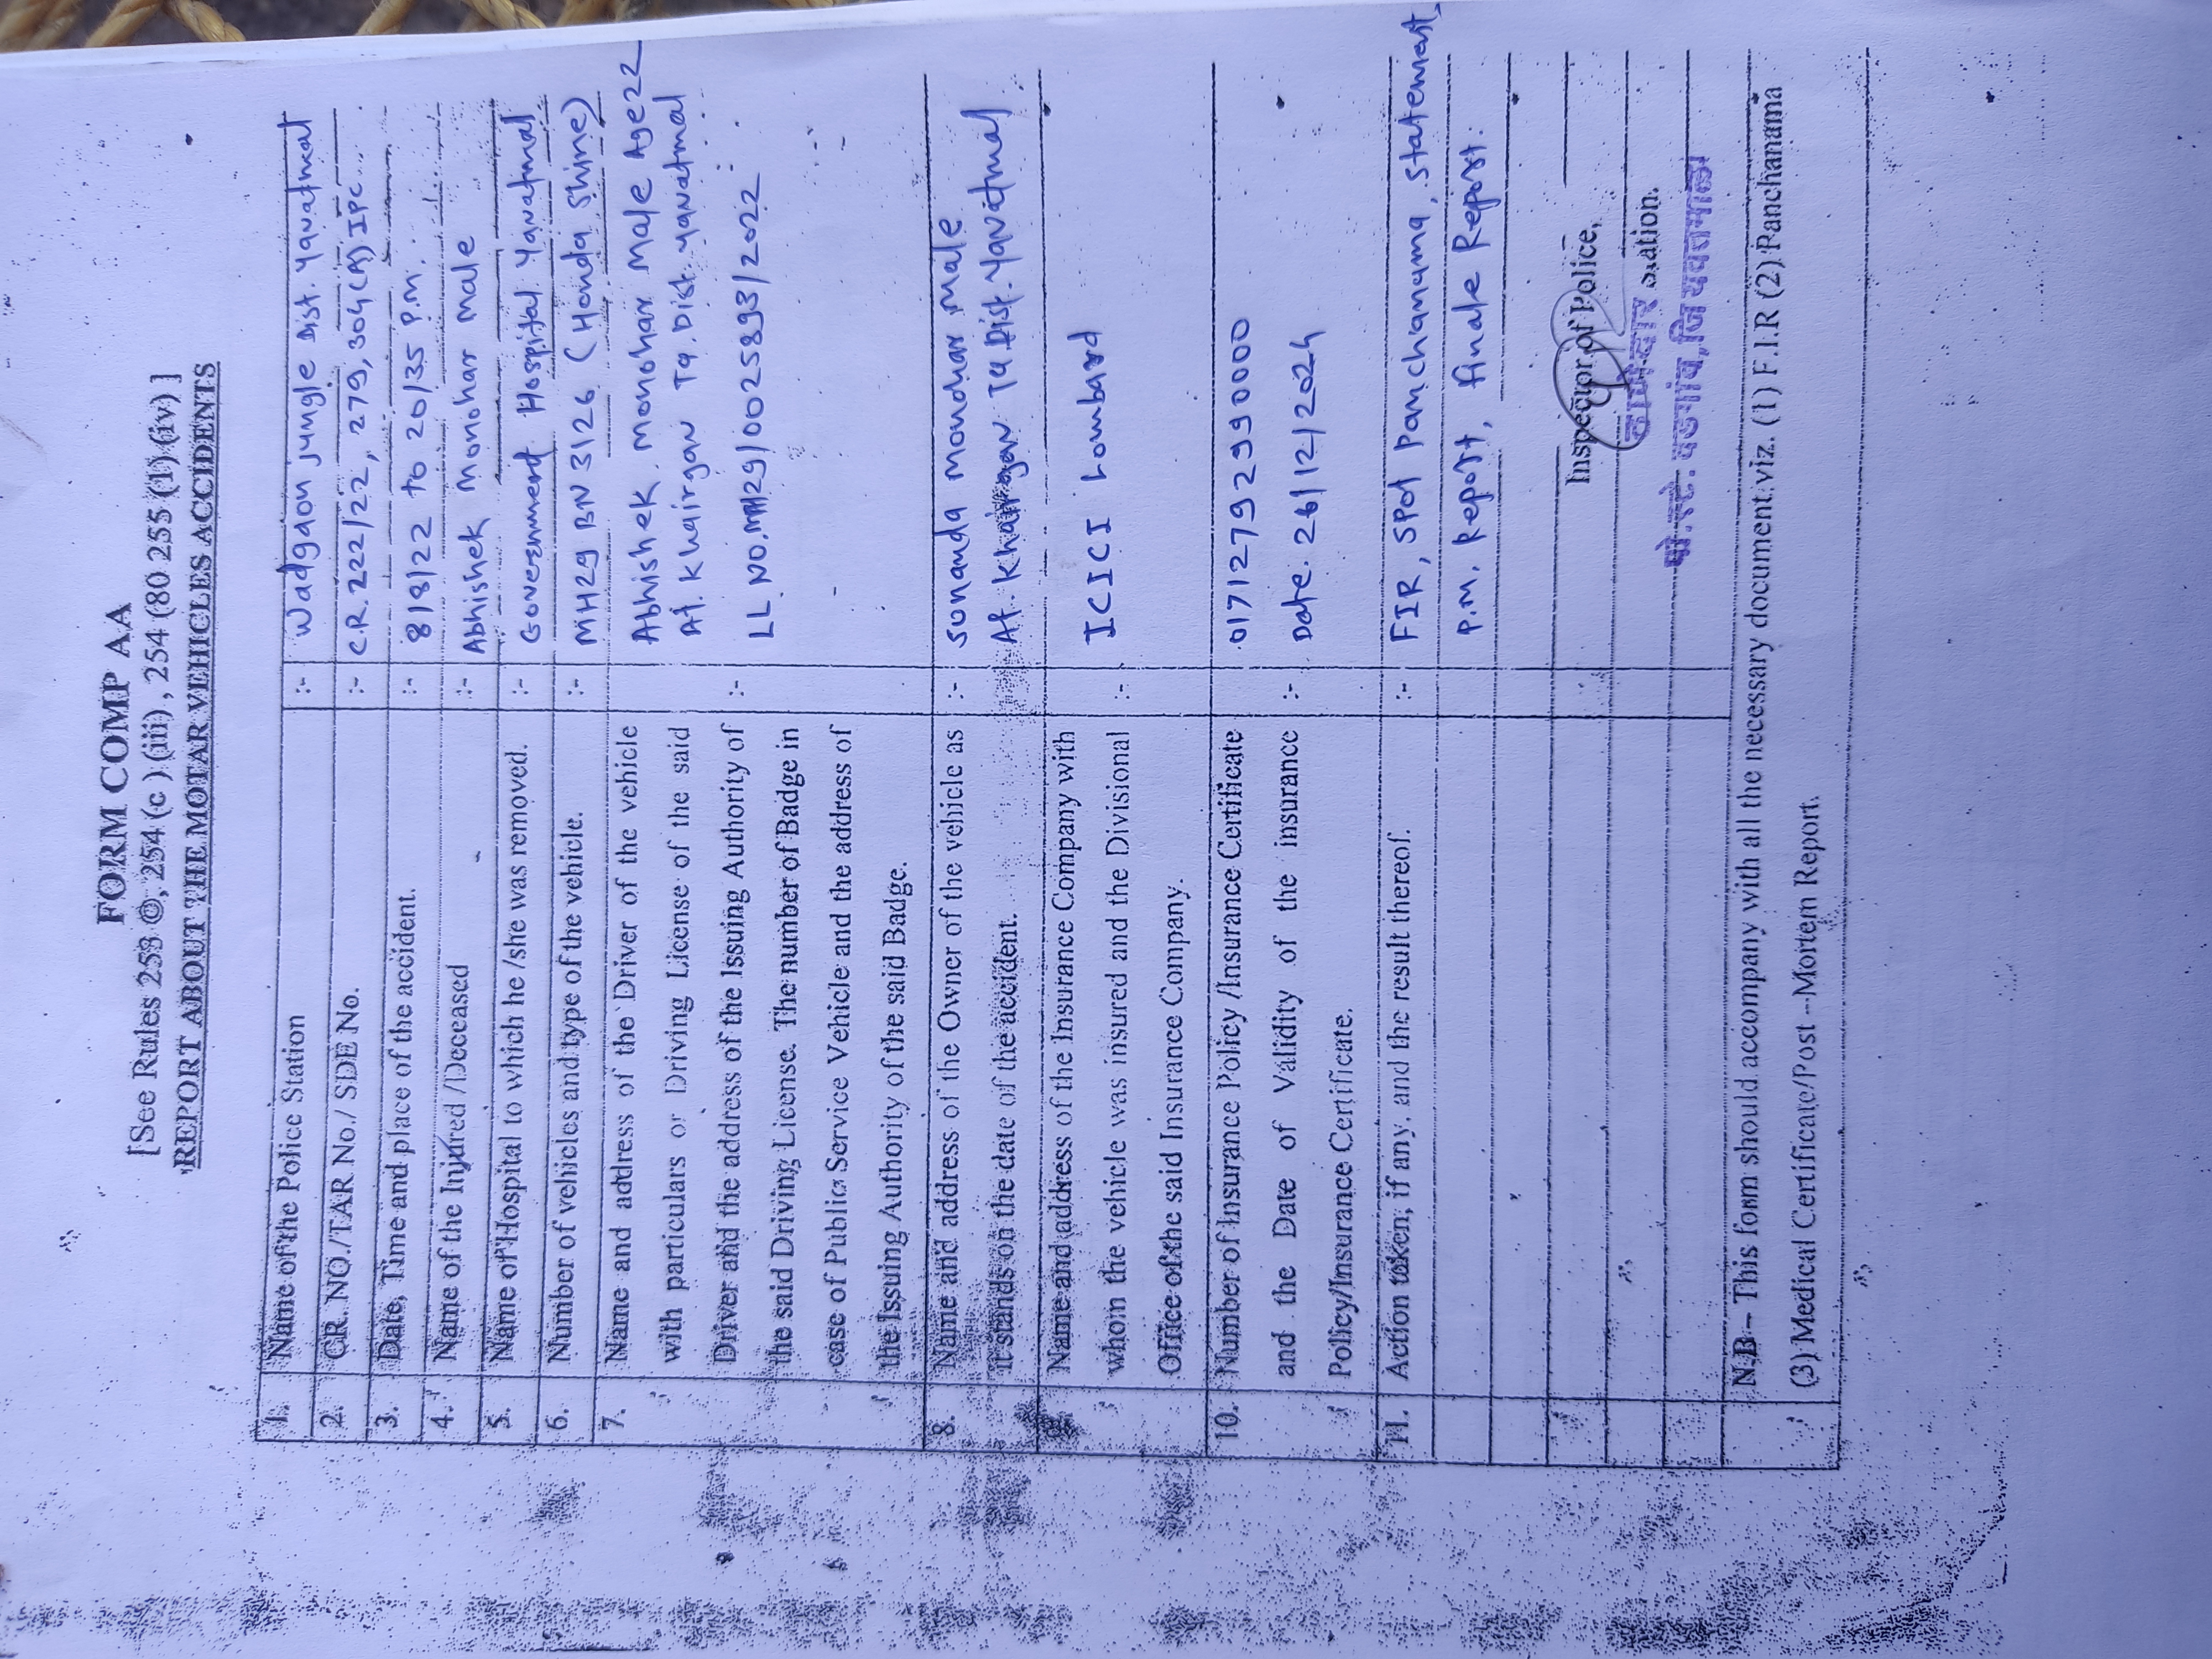 FORM COMP AA
[See Rules 253 ©, 254 (c ) (iii) , 254 (80 255 (1) (iv) ]
'REPORT ABOUT THE MOTAR VEHICLES ACCIDENTS
1. Name of the Police Station :- Wadgaon jungle Dist. Yavatmal
2. CR. NO./TAR No./ SDE No. :- C.R. 222/22, 279, 304(A) IPC
3. Date, Time and place of the accident. :- 8/8/22 to 20/35 P.m.
4. Name of the Injured /Deceased :- Abhishek Monohar Male
5. Name of Hospital to which he /she was removed. :- Government Hospital Yavatmal
6. Number of vehicles and type of the vehicle. :- MH29 BN 3126 (Honda Shine)
7. Name and address of the Driver of the vehicle Abhishek Monohar Male Age 22
with particulars or Driving License of the said At. Khairgav Tq. Dist. Yavatmal
Driver and the address of the Issuing Authority of :- LL NO. MH29/0025893/2022
the said Driving License. The number of Badge in
case of Public Service Vehicle and the address of
the Issuing Authority of the said Badge.
8. Name and address of the Owner of the vehicle as :- Sunanda Monohar Male
it stands on the date of the accident. At. Khairgav Tq Dist. Yavatmal
Name and address of the Insurance Company with
whom the vehicle was insured and the Divisional :- ICICI Lombard
Office of the said Insurance Company.
10. Number of Insurance Policy /Insurance Certificate 0171279299 0000
and the Date of Validity of the insurance :- Date. 26/12/2024
Policy/Insurance Certificate.
11. Action taken, if any, and the result thereof. :- FIR, Spot Panchanama, Statement,
P.m. Report, finale Report.
Inspector of Police,
ठाणेदार
पो.स्टे. वडगांव, जि यवतमाळ
N.B – This form should accompany with all the necessary document viz. (1) F.I.R (2) Panchanama
(3) Medical Certificate/Post –Mortem Report.